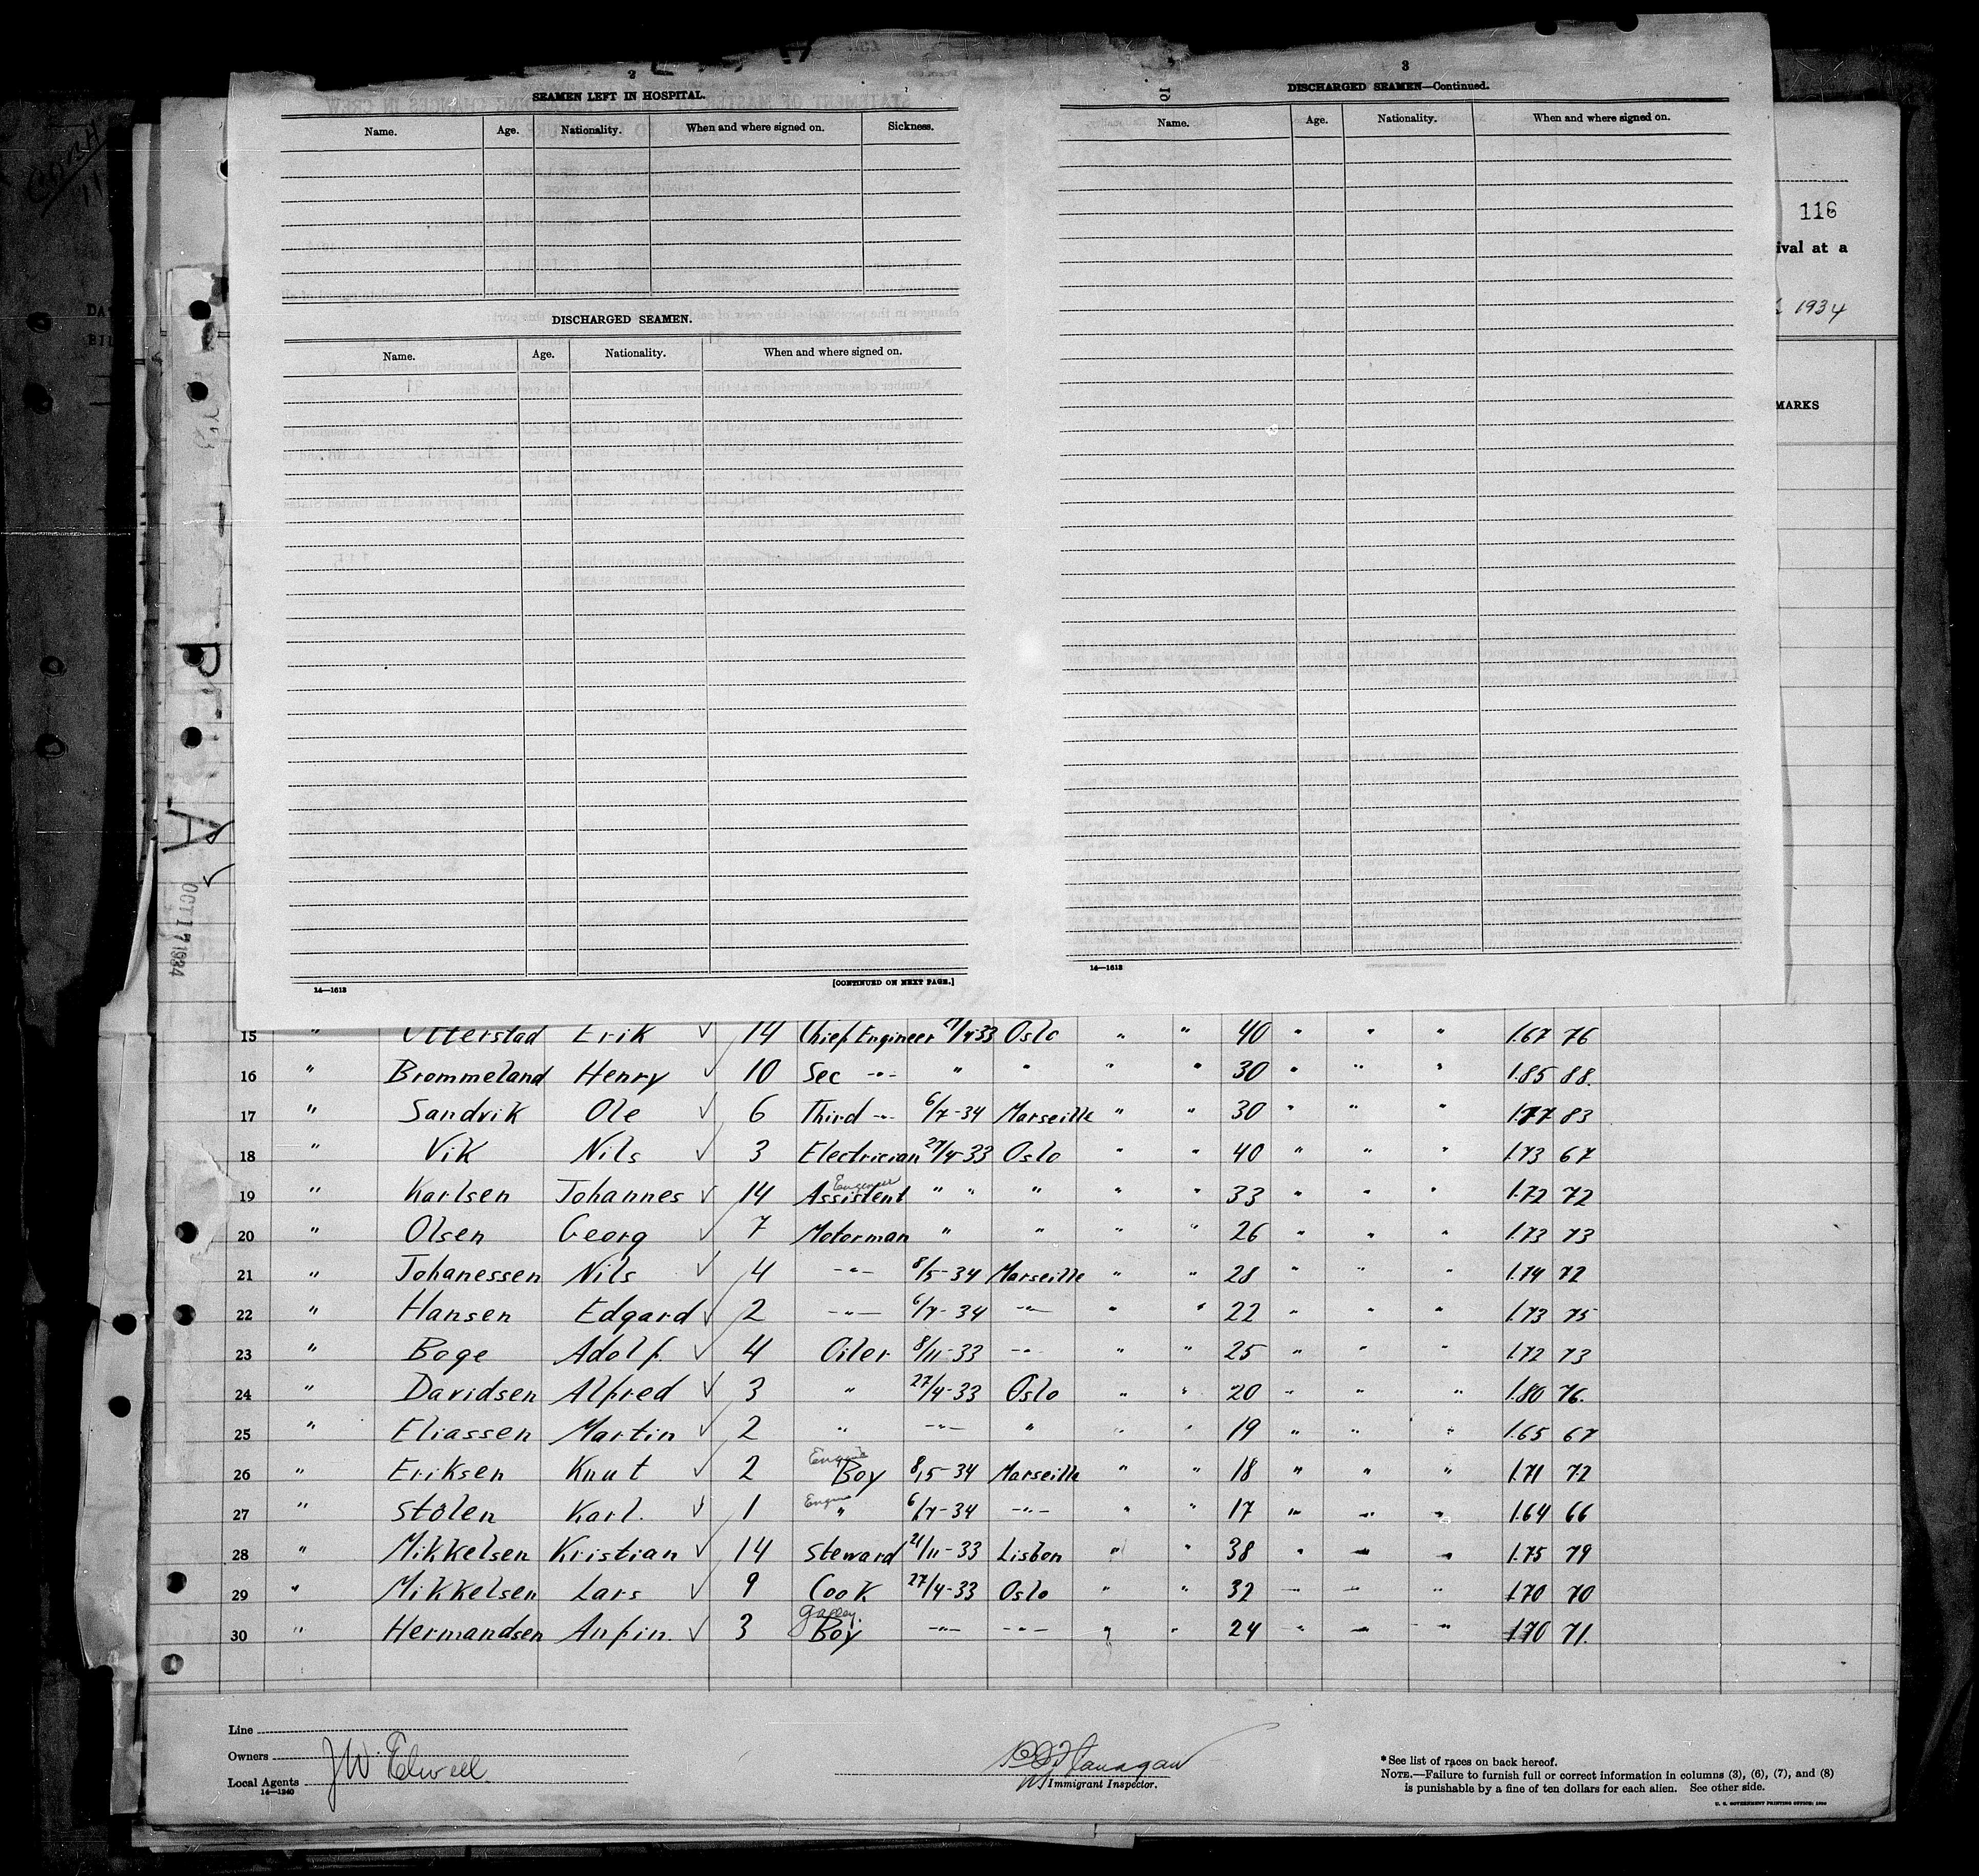 2
SEAMEN LEFT IN HOSPITAL.
Name. Age. Nationality. When and where signed on. Sickness.
DISCHARGED SEAMEN.
Name. Age. Nationality. When and where signed on.
14—1613
[CONTINUED ON NEXT PAGE.]
3
DISCHARGED SEAMEN—Continued.
Name. Age. Nationality. When and where signed on.
14—1613
116
ival at a
1934
MARKS
OCT 17 1934
15 " Utterstad Erik √ 14 Chief Engineer 27/4-33 Oslo " " 40 " " " 1.67 76
16 " Brommeland Henry √ 10 Sec -"- " " " " 30 " " " 1.85 88.
17 " Sandvik Ole √ 6 Third -"- 6/7-34 Marseille " " 30 " " " 1.77 83
18 " Vik Nils √ 3 Electrician 27/4-33 Oslo " " 40 " " " 1.73 67
19 " Karlsen Johannes √ 14 Assistent Engineer " " " " " 33 " " " 1.72 72
20 " Olsen Georg √ 7 Motorman " " " " 26 " " " 1.73 73
21 " Johanessen Nils √ 4 -"- 8/5-34 Marseille " " 28 " " " 1.74 72
22 " Hansen Edgard √ 2 -"- 6/7-34 -"- " " 22 " " " 1.73 75
23 " Boge Adolf √ 4 Oiler 8/11-33 -"- " " 25 " " " 1.72 73
24 " Davidsen Alfred √ 3 " 27/4-33 Oslo " " 20 " " " 1.80 76.
25 " Eliassen Martin √ 2 " -"- " " " 19 " " " 1.65 67
26 " Eriksen Knut √ 2 Engine Boy 8/5-34 Marseille " " 18 " " " 1.71 72
27 " Stolen Karl. √ 1 Engine " 6/7-34 -"- " " 17 " " " 1.64 66
28 " Mikkelsen Kristian √ 14 Steward 21/11-33 Lisbon " " 38 " " " 1.75 79
29 " Mikkelsen Lars √ 9 Cook 27/4-33 Oslo " " 32 " " " 1.70 70
30 " Hermandsen Anfin. √ 3 Galley. Boy -"- -"- " " 24 " " " 1.70 71.
Line
Owners
Local Agents J W Elwell
14—1240
Flanagan
Immigrant Inspector.
*See list of races on back hereof.
NOTE.—Failure to furnish full or correct information in columns (3), (6), (7), and (8)
is punishable by a fine of ten dollars for each alien. See other side.
U. S. GOVERNMENT PRINTING OFFICE: 1930